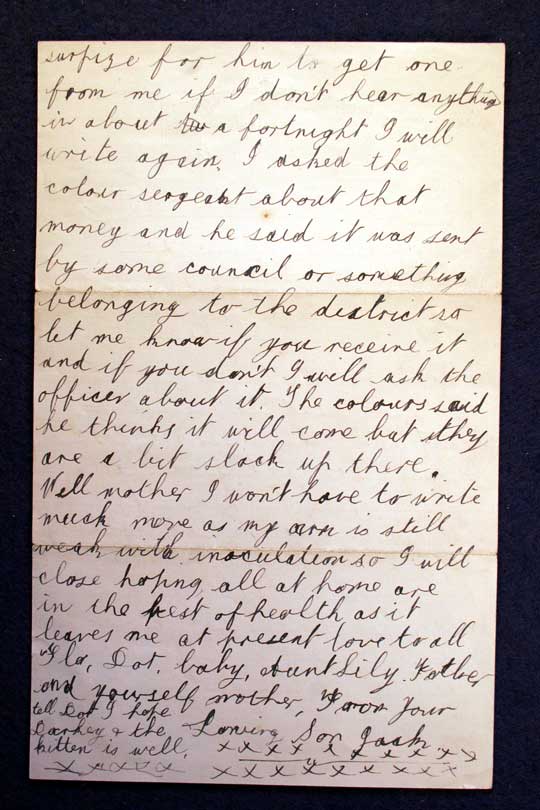 surfize for him to get one
from me if I don't hear anything
in about a fortnight I will
write again. I asked the
colour sergeant about that
money and he said it was sent
by some council or something
belonging to the district so
let me know if you receive it
and if you don't I will ask the
officer about it. The colours said
he thinks it will come but they
are a bit slack up there.
Well mother I won't have to write
much more as my arm is still
weak with inoculation so I will
close hoping all at home are
in the best of health as it
leaves me at present love to all
Flo, Dot, baby, Aunt Lily. Father
and yourself mother, From Your
Loving Son Jack.
x x x x x x x x x x x
x x x x x x x x x x
tell Dot I hope
Darkey & the
kitten is well.
x x x x x